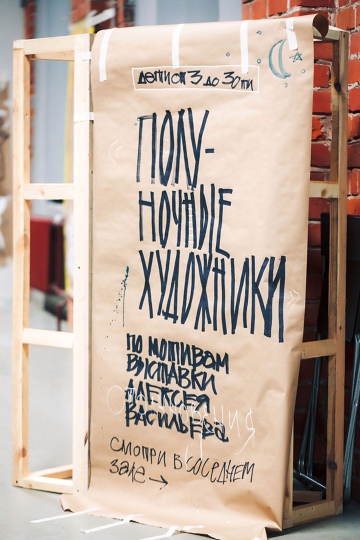 дети от 3 до 30ти
ПОЛУ-
НОЧНЫЕ
ХУДОЖНИКИ
ПО МОТИВАМ
ВЫСТАВКИ
АЛЕКСЕЯ
ВАСИЛЬЕВА
СМОТРИ В СОСЕДНЕМ
ЗАЛЕ →